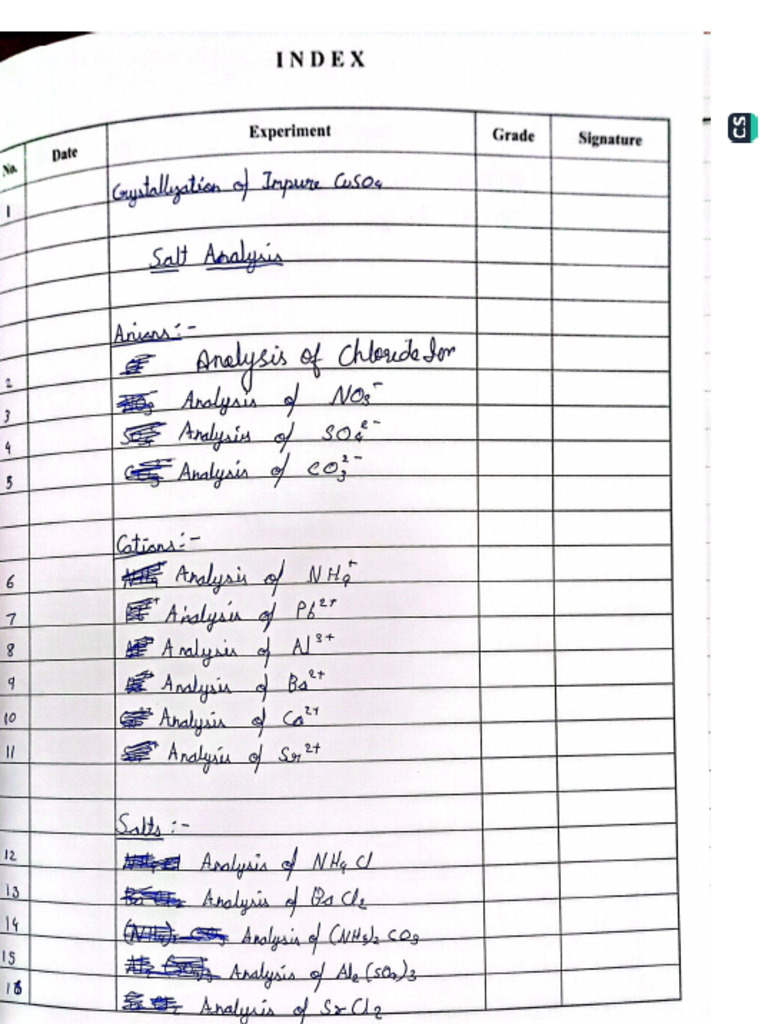 INDEX
No. Date Experiment Grade Signature
1 Crystallyzation of Impure CuSO₄
Salt Analysis
Anions:-
2 Analysis of Chloride Ion
3 Analysis of NO₃⁻
4 Analysis of SO₄²⁻
5 Analysis of CO₃²⁻
Cations:-
6 Analysis of NH₄⁺
7 Analysis of Pb²⁺
8 Analysis of Al³⁺
9 Analysis of Ba²⁺
10 Analysis of Ca²⁺
11 Analysis of Sr²⁺
Salts:-
12 Analysis of NH₄Cl
13 Analysis of BaCl₂
14 Analysis of (NH₄)₂CO₃
15 Analysis of Al₂(SO₄)₃
16 Analysis of SrCl₂
CS